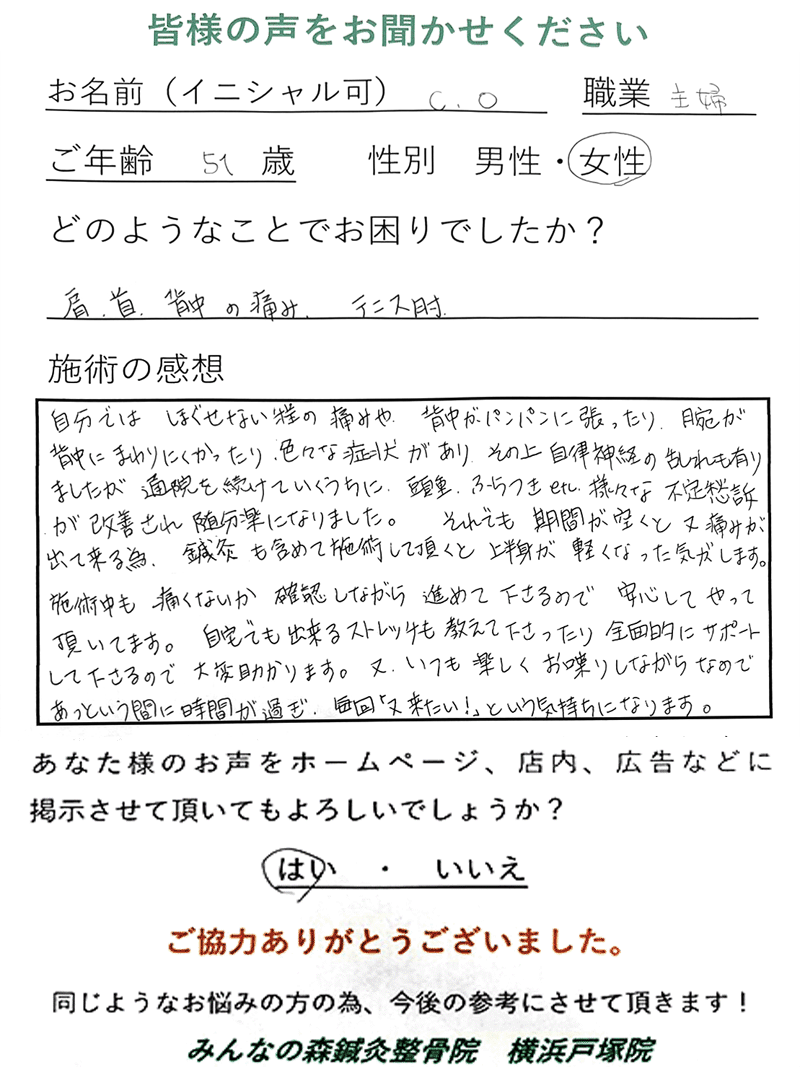 皆様の声をお聞かせください
お名前（イニシャル可） C.O 職業 主婦
ご年齢 51 歳 性別 男性・女性
どのようなことでお困りでしたか？
肩.首.背中の痛み. テニス肘.
施術の感想
自分では ほぐせない程の 痛みや 背中がパンパンに張ったり. 腕が
背中に まわりにくかったり.色々な症状 があり その上 自律神経の乱れも有り
ましたが 通院を続けていくうちに. 頭重.ふらつきetc.様々な 不定愁訴
が 改善され 随分楽になりました。 それでも 期間が空くと又痛みが
出て来る為. 鍼灸 も含めて施術して頂くと 上半身が 軽くなった気がします。
施術中も 痛くないか 確認しながら 進めて 下さるので 安心して やって
頂いてます。 自宅でも出来るストレッチも 教えて下さったり 全面的に サポート
して下さるので 大変助かります。 又.いつも 楽しく お喋りしながらなので
あっという間に時間が過ぎ. 毎回「又来たい!」という気持ちになります。
あなた様のお声をホームページ、店内、広告などに
掲示させて頂いてもよろしいでしょうか？
はい ・ いいえ
ご協力ありがとうございました。
同じようなお悩みの方の為、今後の参考にさせて頂きます！
みんなの森鍼灸整骨院 横浜戸塚院